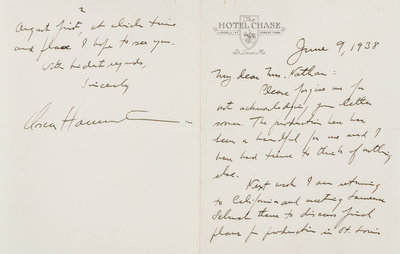 The
HOTEL CHASE
LINDELL AT FOREST PARK
St. Louis, Mo.
June 9, 1938
My dear Mrs. Nathan:
Please forgive me for
not acknowledging your letter
sooner. The production here has
been a handful for me and I
have had time to think of nothing
else.
Next week I am returning
to California and meeting Laurence
Schwab there to discuss final
plans for production in St. Louis
2
August first, at which time
and place I hope to see you.
With kindest regards,
Sincerely
Oscar